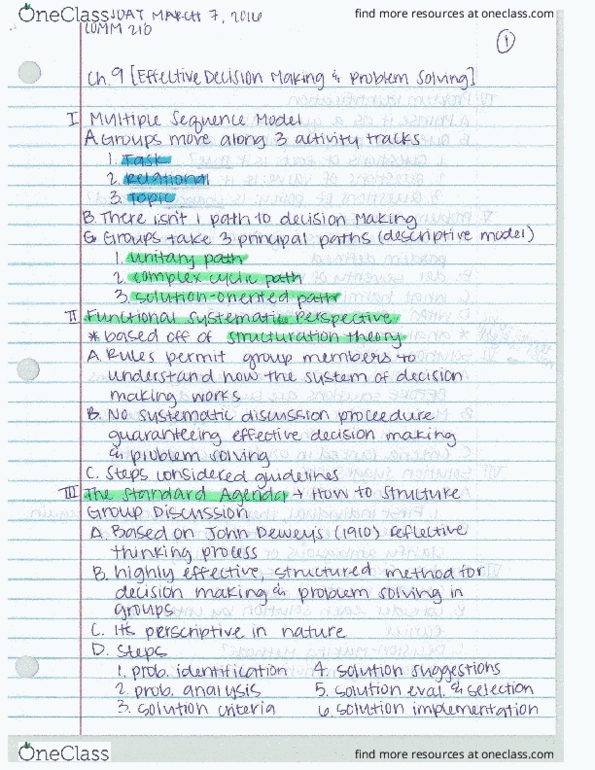 OneClass
find more resources at oneclass.com
MARCH 7, 2016
COMM 210
1
Ch. 9 [Effective Decision Making & Problem Solving]
I Multiple Sequence Model
A. Groups move along 3 activity tracks
1. Task
2. Relational
3. Topic
B. There isn't 1 path to decision making
C. Groups take 3 principal paths (descriptive model)
1. unitary path
2. complex cyclic path
3. solution-oriented path
II Functional Systematic Perspective
* based off of structuration theory
A. Rules permit group members to
understand how the system of decision
making works
B. No systematic discussion proceedure
guaranteeing effective decision making
& problem solving
C. Steps considered guidelines
III The Standard Agenda → How to structure
Group Discussion
A. Based on John Dewey's (1910) reflective
thinking process
B. highly effective, structured method for
decision making & problem solving in
groups
C. Its perscriptive in nature
D. Steps
1. prob. identification
2. prob. analysis
3. solution criteria
4. solution suggestions
5. solution eval. & selection
6. solution implementation
OneClass
find more resources at oneclass.com